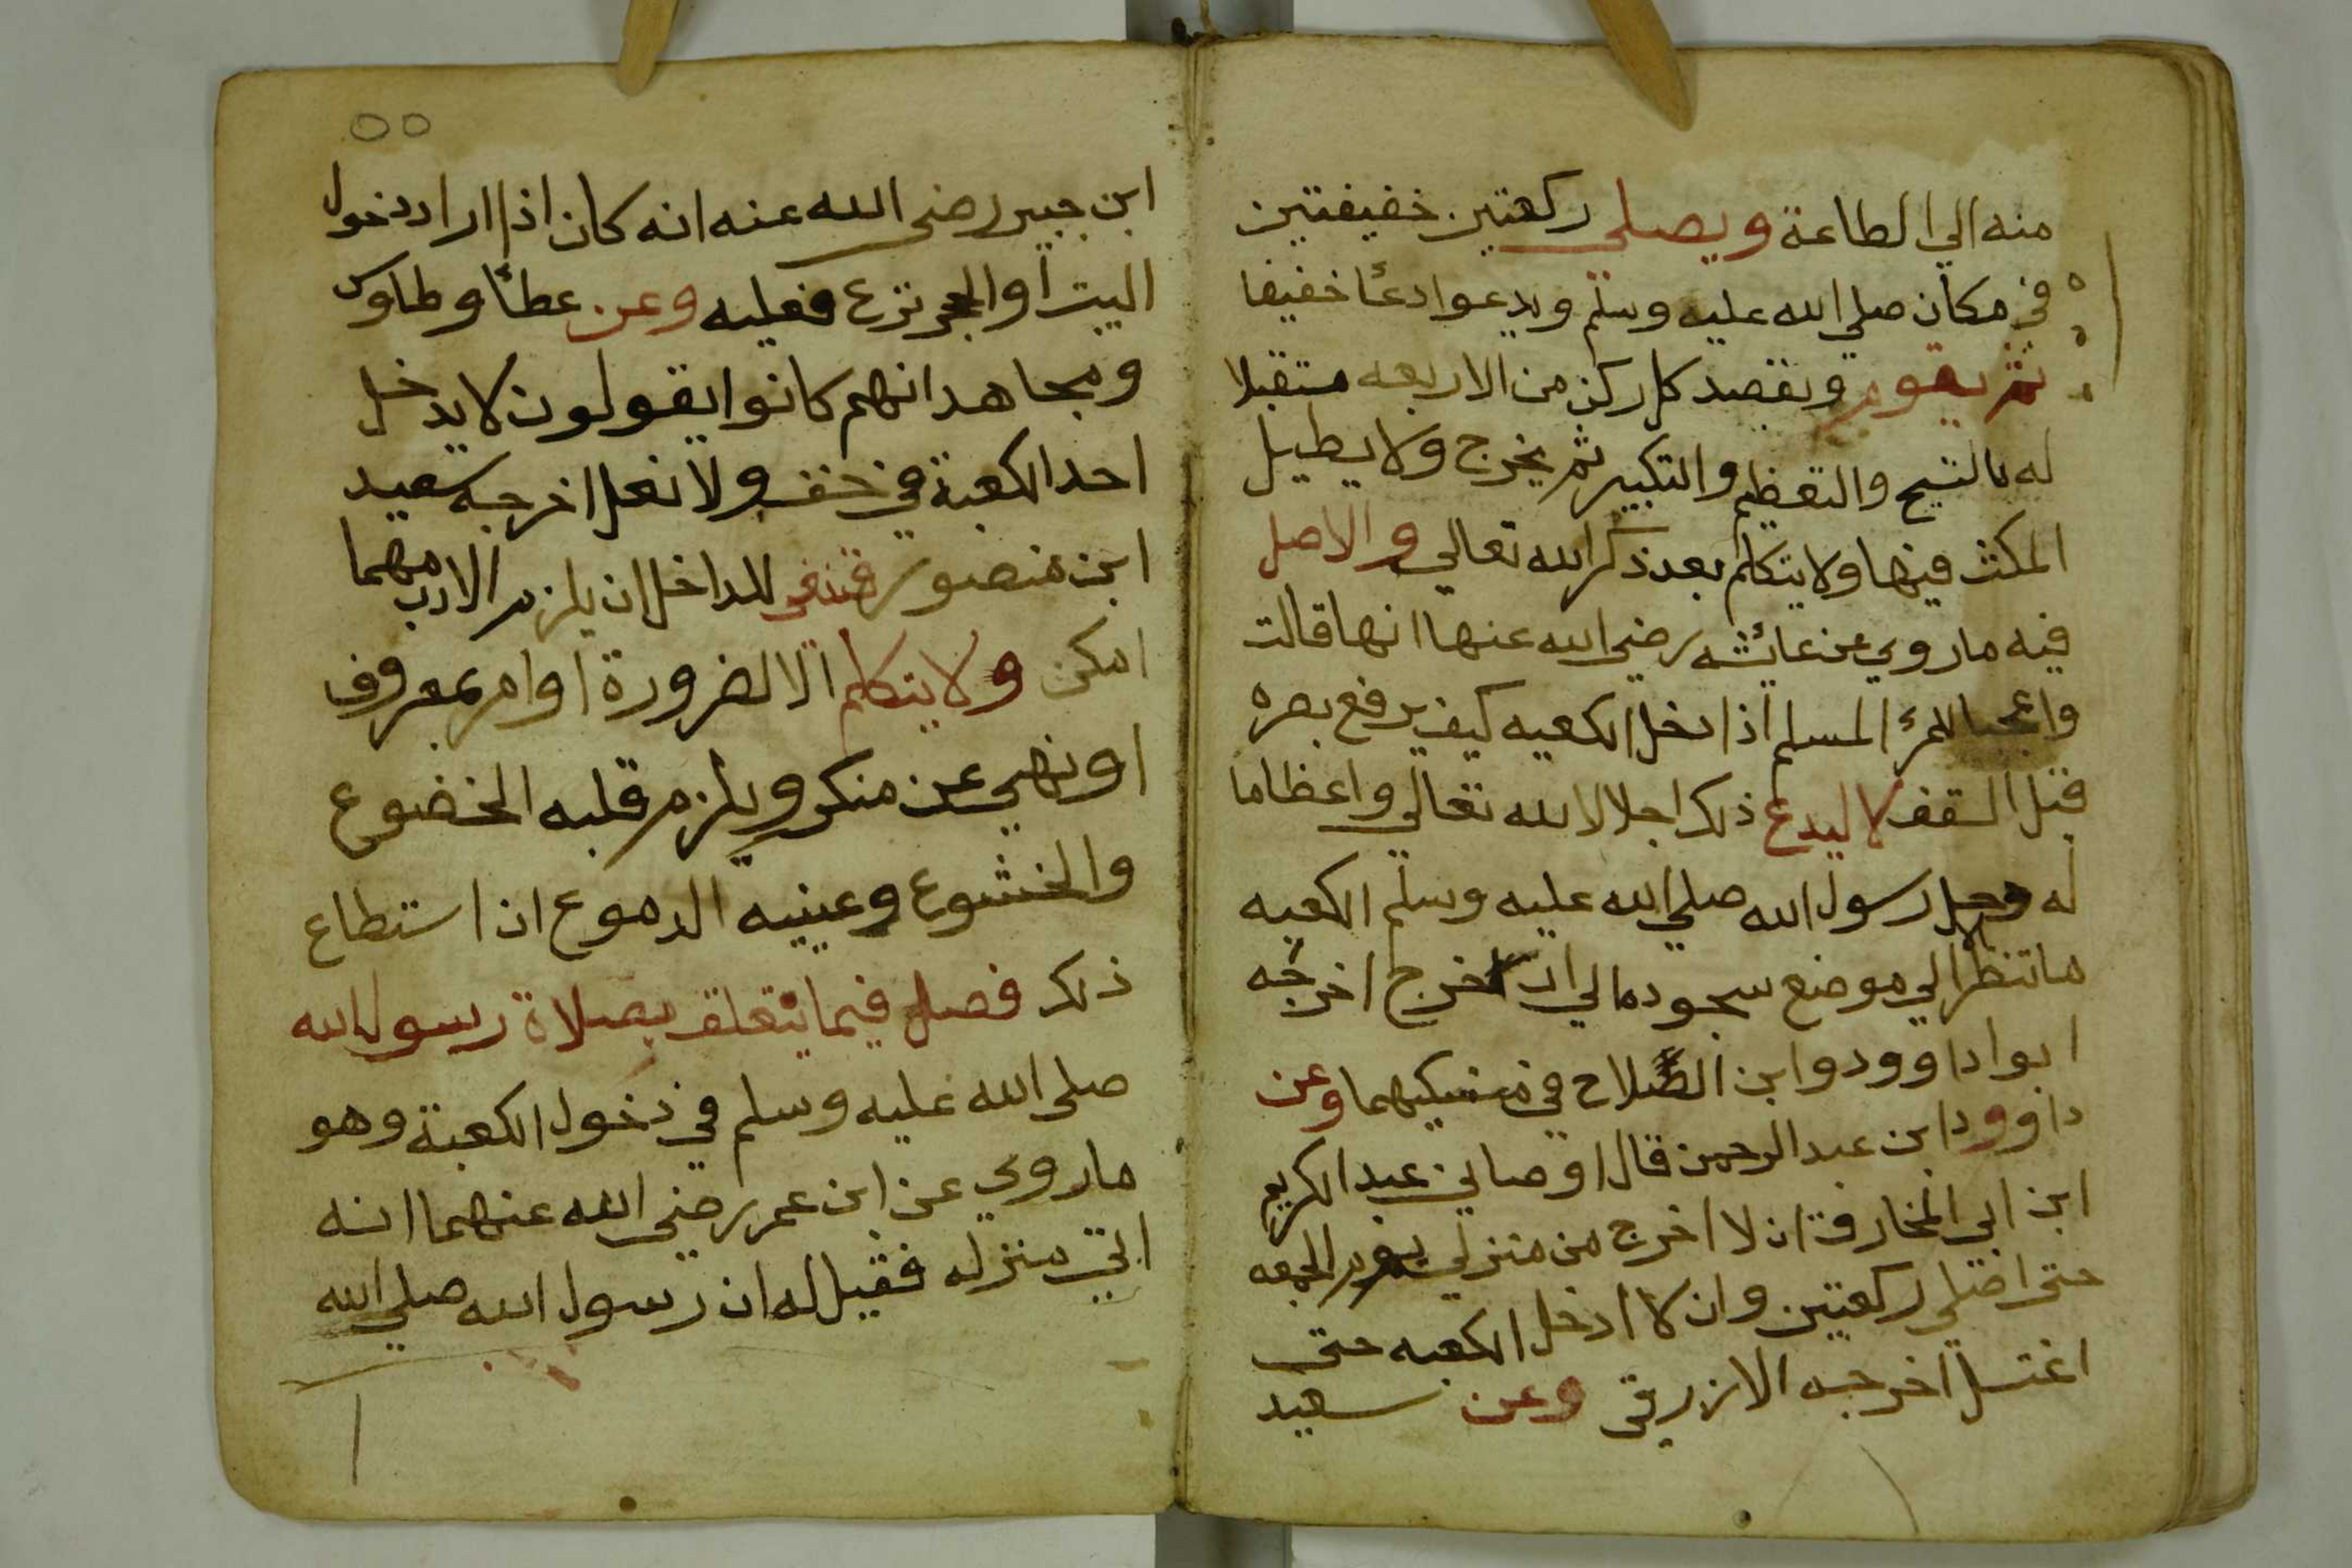 منه الي الطاعة ويصلي ركعتين خفيفتين
في مكان صلي الله عليه وسلم ويدعوا دعئا خفيفا
ثم يقوم ويقصد كل ركن من الاربعه مستقبلا
له بالتسبيح والتعظيم والتكبير ثم يخرج ولا يطيل
المكث فيها ولا يتكلم بعد ذكر الله تعالي والاصل
فيه ما روي عن عائشه رضي الله عنها انها قالت
واعجبا للمرء المسلم اذا دخل الكعبه كيف يرفع بصره
قبل السقف لا ليدع ذلك اجلالا لله تعالي واعظاما
له رسول الله صلي الله عليه وسلم الكعبه
ما تنظر الي موضع سجوده الي ان خرج اخرجه
ابوا داوود وابن الصلاح في منسكيهما وعن
داوود ابن عبد الرحمن قال اوصاني عبد الكريم
ابن ابي المخارق ان لا اخرج من منزلي يوم الجمعه
حتى اصلي ركعتين وان لا ادخل الكعبه حتى
اغتسل اخرجه الازرقى وعن سعيد
٥٥
ابن جبير رضي الله عنه انه كان اذا اراد دخول
البيت او الحجر نزع نعليه وعن عطئا وطاوس
ومجاهد انهم كانوا يقولون لا يدخل
احد الكعبة في خف ولا نعل اخرجه سعيد
ابن منصور للداخل ان يلزم الادب مهما
امكن ولا يتكلم الا لضرورة او امر بمعروف
او نهي عن منكر ويلزم قلبه الخضوع
والخشوع وعينيه الدموع ان استطاع
ذلك فصل فيما يتعلق بصلاة رسول الله
صلى الله عليه وسلم في دخول الكعبة وهو
ما روي عن ابن عمر رضي الله عنهما انه
اتي منزله فقيل له ان رسول الله صلي الله